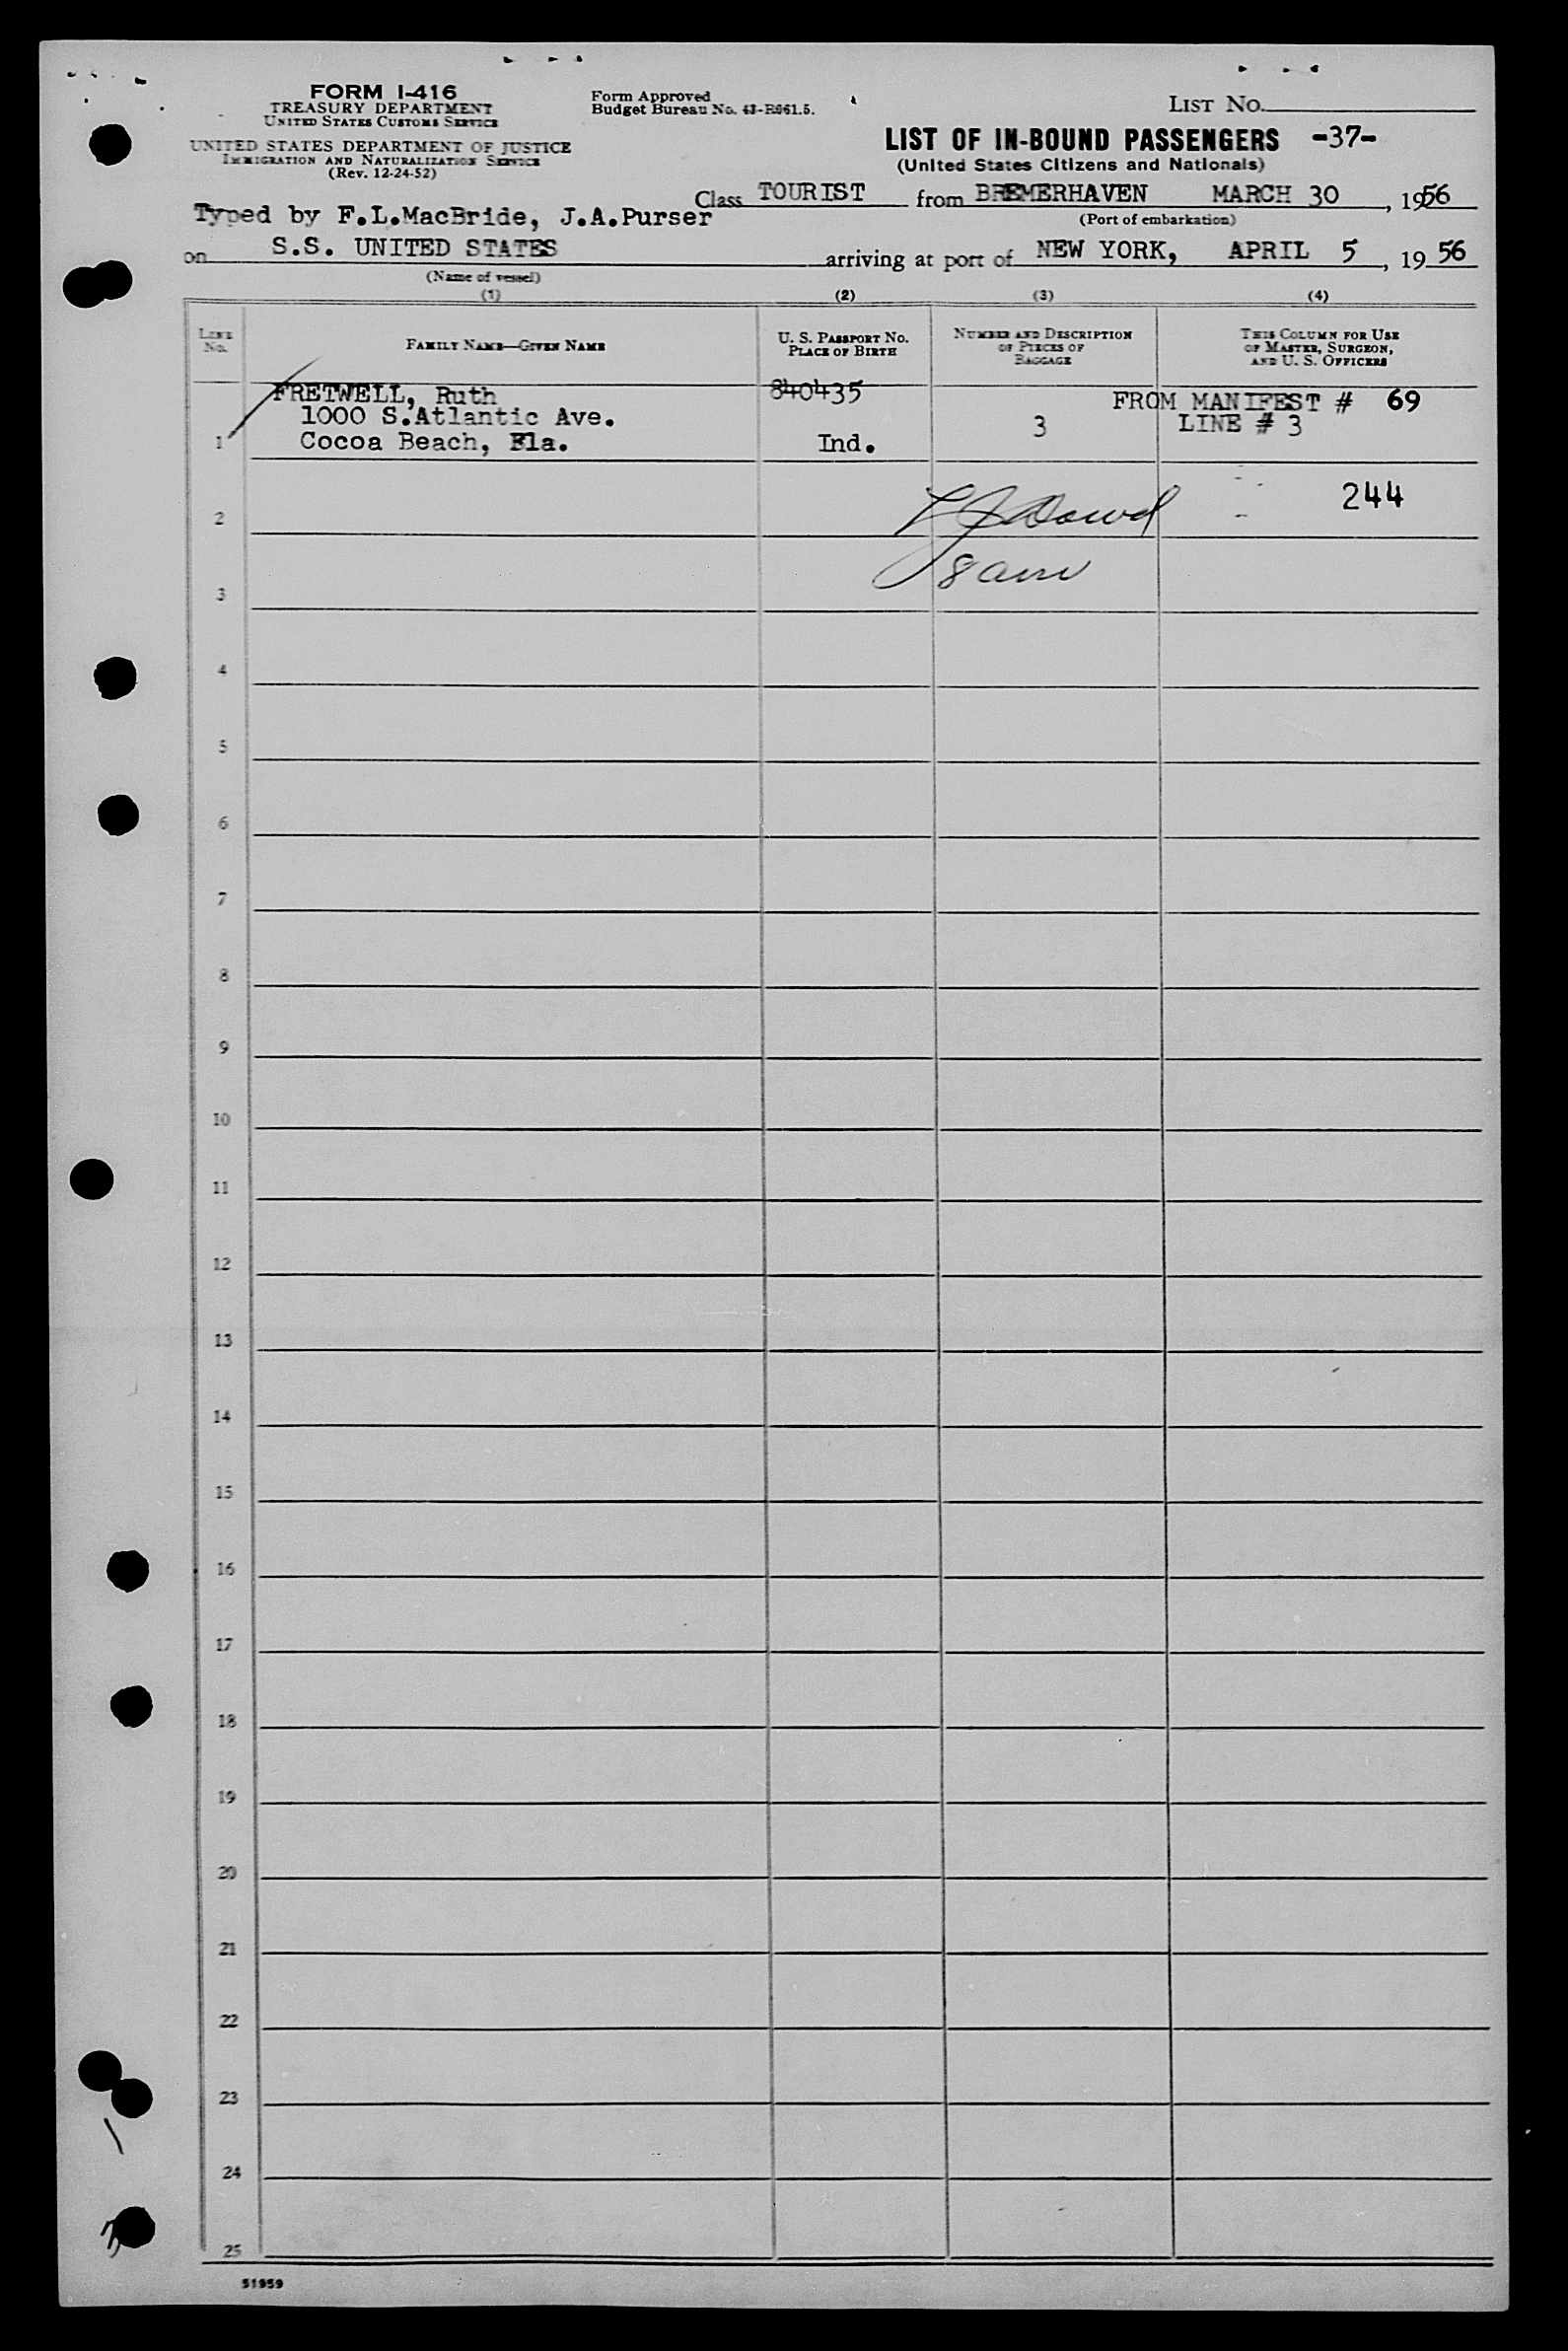 FORM I-416
TREASURY DEPARTMENT
UNITED STATES CUSTOMS SERVICE
UNITED STATES DEPARTMENT OF JUSTICE
IMMIGRATION AND NATURALIZATION SERVICE
(Rev. 12-24-52)
Form Approved
Budget Bureau No. 43-R061.5.
LIST NO.
LIST OF IN-BOUND PASSENGERS -37-
(United States Citizens and Nationals)
Class TOURIST from BREMERHAVEN MARCH 30, 1956
(Port of embarkation)
Typed by F.L.MacBride, J.A.Purser
on S.S. UNITED STATES arriving at port of NEW YORK, APRIL 5, 1956
(Name of vessel)
(1) (2) (3) (4)
LINE No. FAMILY NAME—GIVEN NAME U. S. PASSPORT NO. PLACE OF BIRTH NUMBER AND DESCRIPTION OF PIECES OF BAGGAGE THIS COLUMN FOR USE OF MASTER, SURGEON, AND U. S. OFFICERS
FRETWELL, Ruth 840435 FROM MANIFEST # 69
1000 S.Atlantic Ave. 3 LINE # 3
1 Cocoa Beach, Fla. Ind.
2 244
3
4
5
6
7
8
9
10
11
12
13
14
15
16
17
18
19
20
21
22
23
24
25
51959